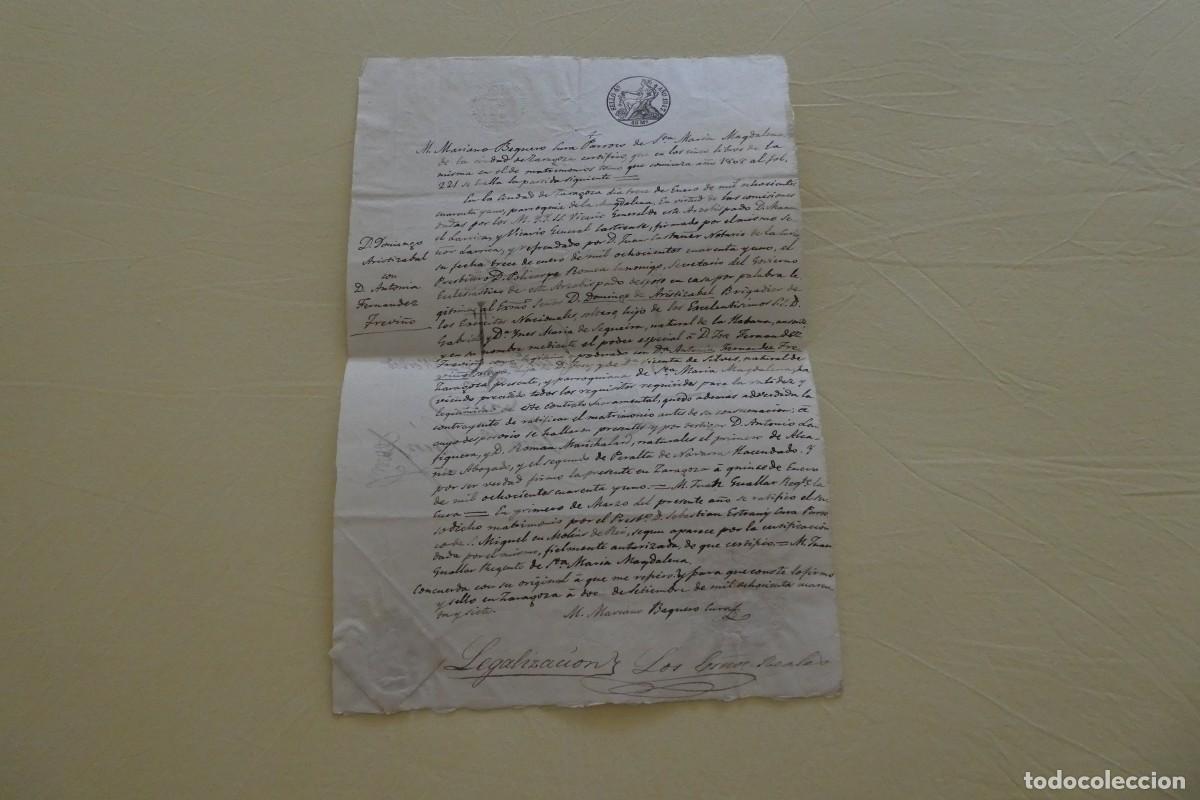 SELLO 4º AÑO 1847
40 MS
M. Mariano Bequero Cura Parroco de Sta Maria Magdalena
de la ciudad de Zaragoza certifico, que en los cinco libros de la
misma en el de matrimonios tomo que comienza año 1808 al fol.
221 se halla la partida siguiente
En la ciudad de Zaragoza dia trece de Enero de mil ochocientos
cuarenta y uno, parroquia de la Magdalena, En virtud de las comisiones
dadas por los M. Y. Vicario General de este Arzobispado D. Manu
el Larrica, y Vicario General Castrense, firmado por el mismo Se
ñor Larrica, y refrendado por D. Juan Castañer Notario de la Curia,
su fecha trece de enero de mil ochocientos cuarenta y uno, el
Presbitero D. Policarpo Romea Canonigo, Secretario del Govierno
Ecclesiastico de este Arzobispado desposo en casa por palabra le
gitima al Exmo Señor D. Domingo de Aristizabal Brigadier de
los Exercitos Nacionales, soltero, hijo de los Excelentisimos D.
Gabriel y Da Ynes Maria de Sequeira, natural de la Habana, ausente
y en su nombre mediante el poder especial á D. Fernandez
Treviño con Da Antonia Fernandez Tre
viño de Silves, natural de
Zaragoza presente, y parroquiana de Sta Maria Magdalena, ha
viendo precedido todos los requisitos requiridos para la validez y
legitimidad de este contrato sacramental, quedo ademas advertida la
contrayente de ratificar el matrimonio antes de su consumacion; á
cuyo desposorio se hallaron presentes y por testigos D. Antonio La
figuera, y D. Roman Marichalar, naturales el primero de Alca
ñiz Abogado, y el segundo de Peralta de Navarra Hacendado. Y
por ser verdad firmo la presente en Zaragoza á quince de Enero
de mil ochocientos cuarenta y uno. = M. Juan Guallar Regte la
Cura = En primero de Marzo del presente año se ratificó el su
sodicho matrimonio por el Presbo D. Sebastian Cura Parro
co de S. Miguel en Molins de Rei, segun aparece por la certificacion
dada por el mismo, fielmente autorizada, de que certifico. = M. Juan
Guallar Regente de Sta Maria Magdalena.
Concuerda con su original á que me refiero. Y para que conste lo firmo
y sello en Zaragoza á doce de Setiembre de mil ochocientos cuaren
ta y siete.
M. Mariano Bequero Cura
D. Domingo
Aristizabal
con
D. Antonia
Fernandez
Treviño
Legalizacion Los
todocoleccion